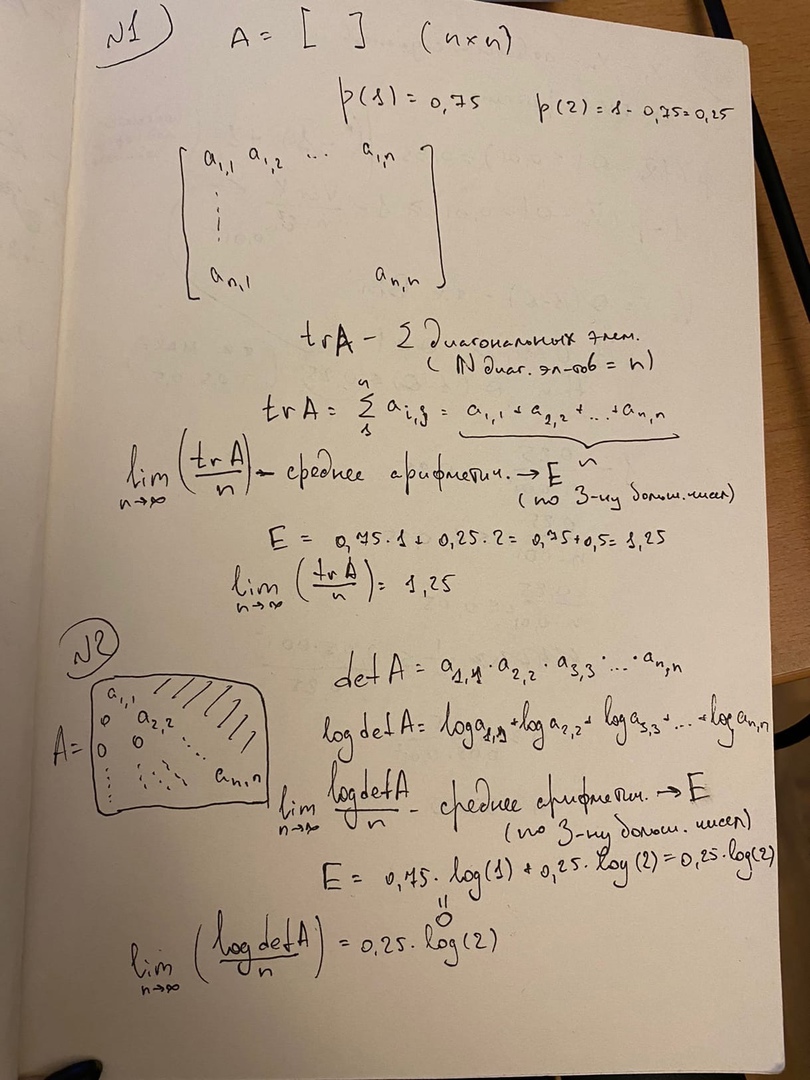 N1) A = [ ] (n×n)
p(1) = 0,75 p(2) = 1 - 0,75=0,25
a1,1 a1,2 ... a1,n
an,1 an,n
trA – Σ диагональных элем.
( N диаг. эл-тов = n)
trA = Σ ai,j = a1,1 + a2,2 + ... + an,n
n
1
n
lim n→∞ (trA/n) – среднее арифметич. → E
(по З-ну больш. чисел)
E = 0,75·1 + 0,25·2 = 0,75+0,5= 1,25
lim n→∞ (trA/n) = 1,25
N2
A = a1,1
0 a2,2
0 0 ...
an,n
detA = a1,1 · a2,2 · a3,3 · ... · an,n
log detA = log a1,1 + log a2,2 + log a3,3 + ... + log an,n
lim n→∞ logdetA/n – среднее арифметич. → E
(по З-ну больш. чисел)
E = 0,75 · log(1) + 0,25 · log(2) = 0,25·log(2)
=
0
lim n→∞ (logdetA/n) = 0,25 · log(2)